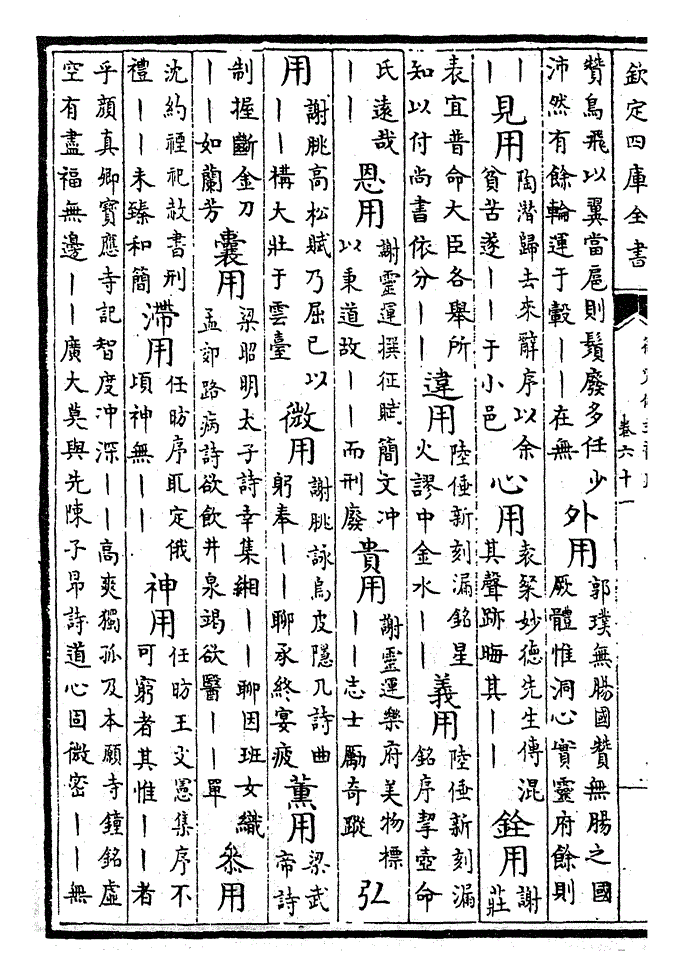 欽定四庫全書
卷六十一
贊鳥飛以翼當扈則鬚廢多任少
沛然有餘輪運于轂丨丨在無
外用
郭璞無腸國贊無腸之國
厥體惟洞心實靈府餘則
丨
丨
見用
陶潛歸去來辭序以余
貧苦遂丨丨于小邑
心用
袁粲妙德先生傳混
其聲跡晦其丨丨
銓用
謝
莊
表宜普命大臣各舉所
知以付尚書依分丨丨
違用
陸倕新刻漏銘星
火謬中金水丨丨
義用
陸倕新刻漏
銘序挈壺命
氏遠哉
丨丨
恩用
謝靈運撰征賦簡文冲
以秉道故丨丨而刑廢
貴用
謝靈運樂府美物標
丨丨志士勵奇蹤
弘
用
謝朓高松賦乃屈已以
丨丨構大壯于雲臺
微用
謝朓詠烏皮隱几詩曲
躬奉丨丨聊承終宴疲
薰用
梁武
帝詩
制握斷金刀
丨丨如蘭芳
囊用
梁昭明太子詩幸集緗丨丨聊因班女織
孟郊路病詩欲飲井泉竭欲醫丨丨單
叅用
沈約禋祀赦書刑
禮丨丨未臻和簡
滯用
任昉序耴定俄
頃神無丨丨
神用
任昉王文憲集序不
可窮者其惟丨丨者
乎顏真卿寶應寺記智度冲深丨丨高爽獨孤及本願寺鐘銘虛
空有盡福無邊丨丨廣大莫與先陳子昂詩道心固微密丨丨無